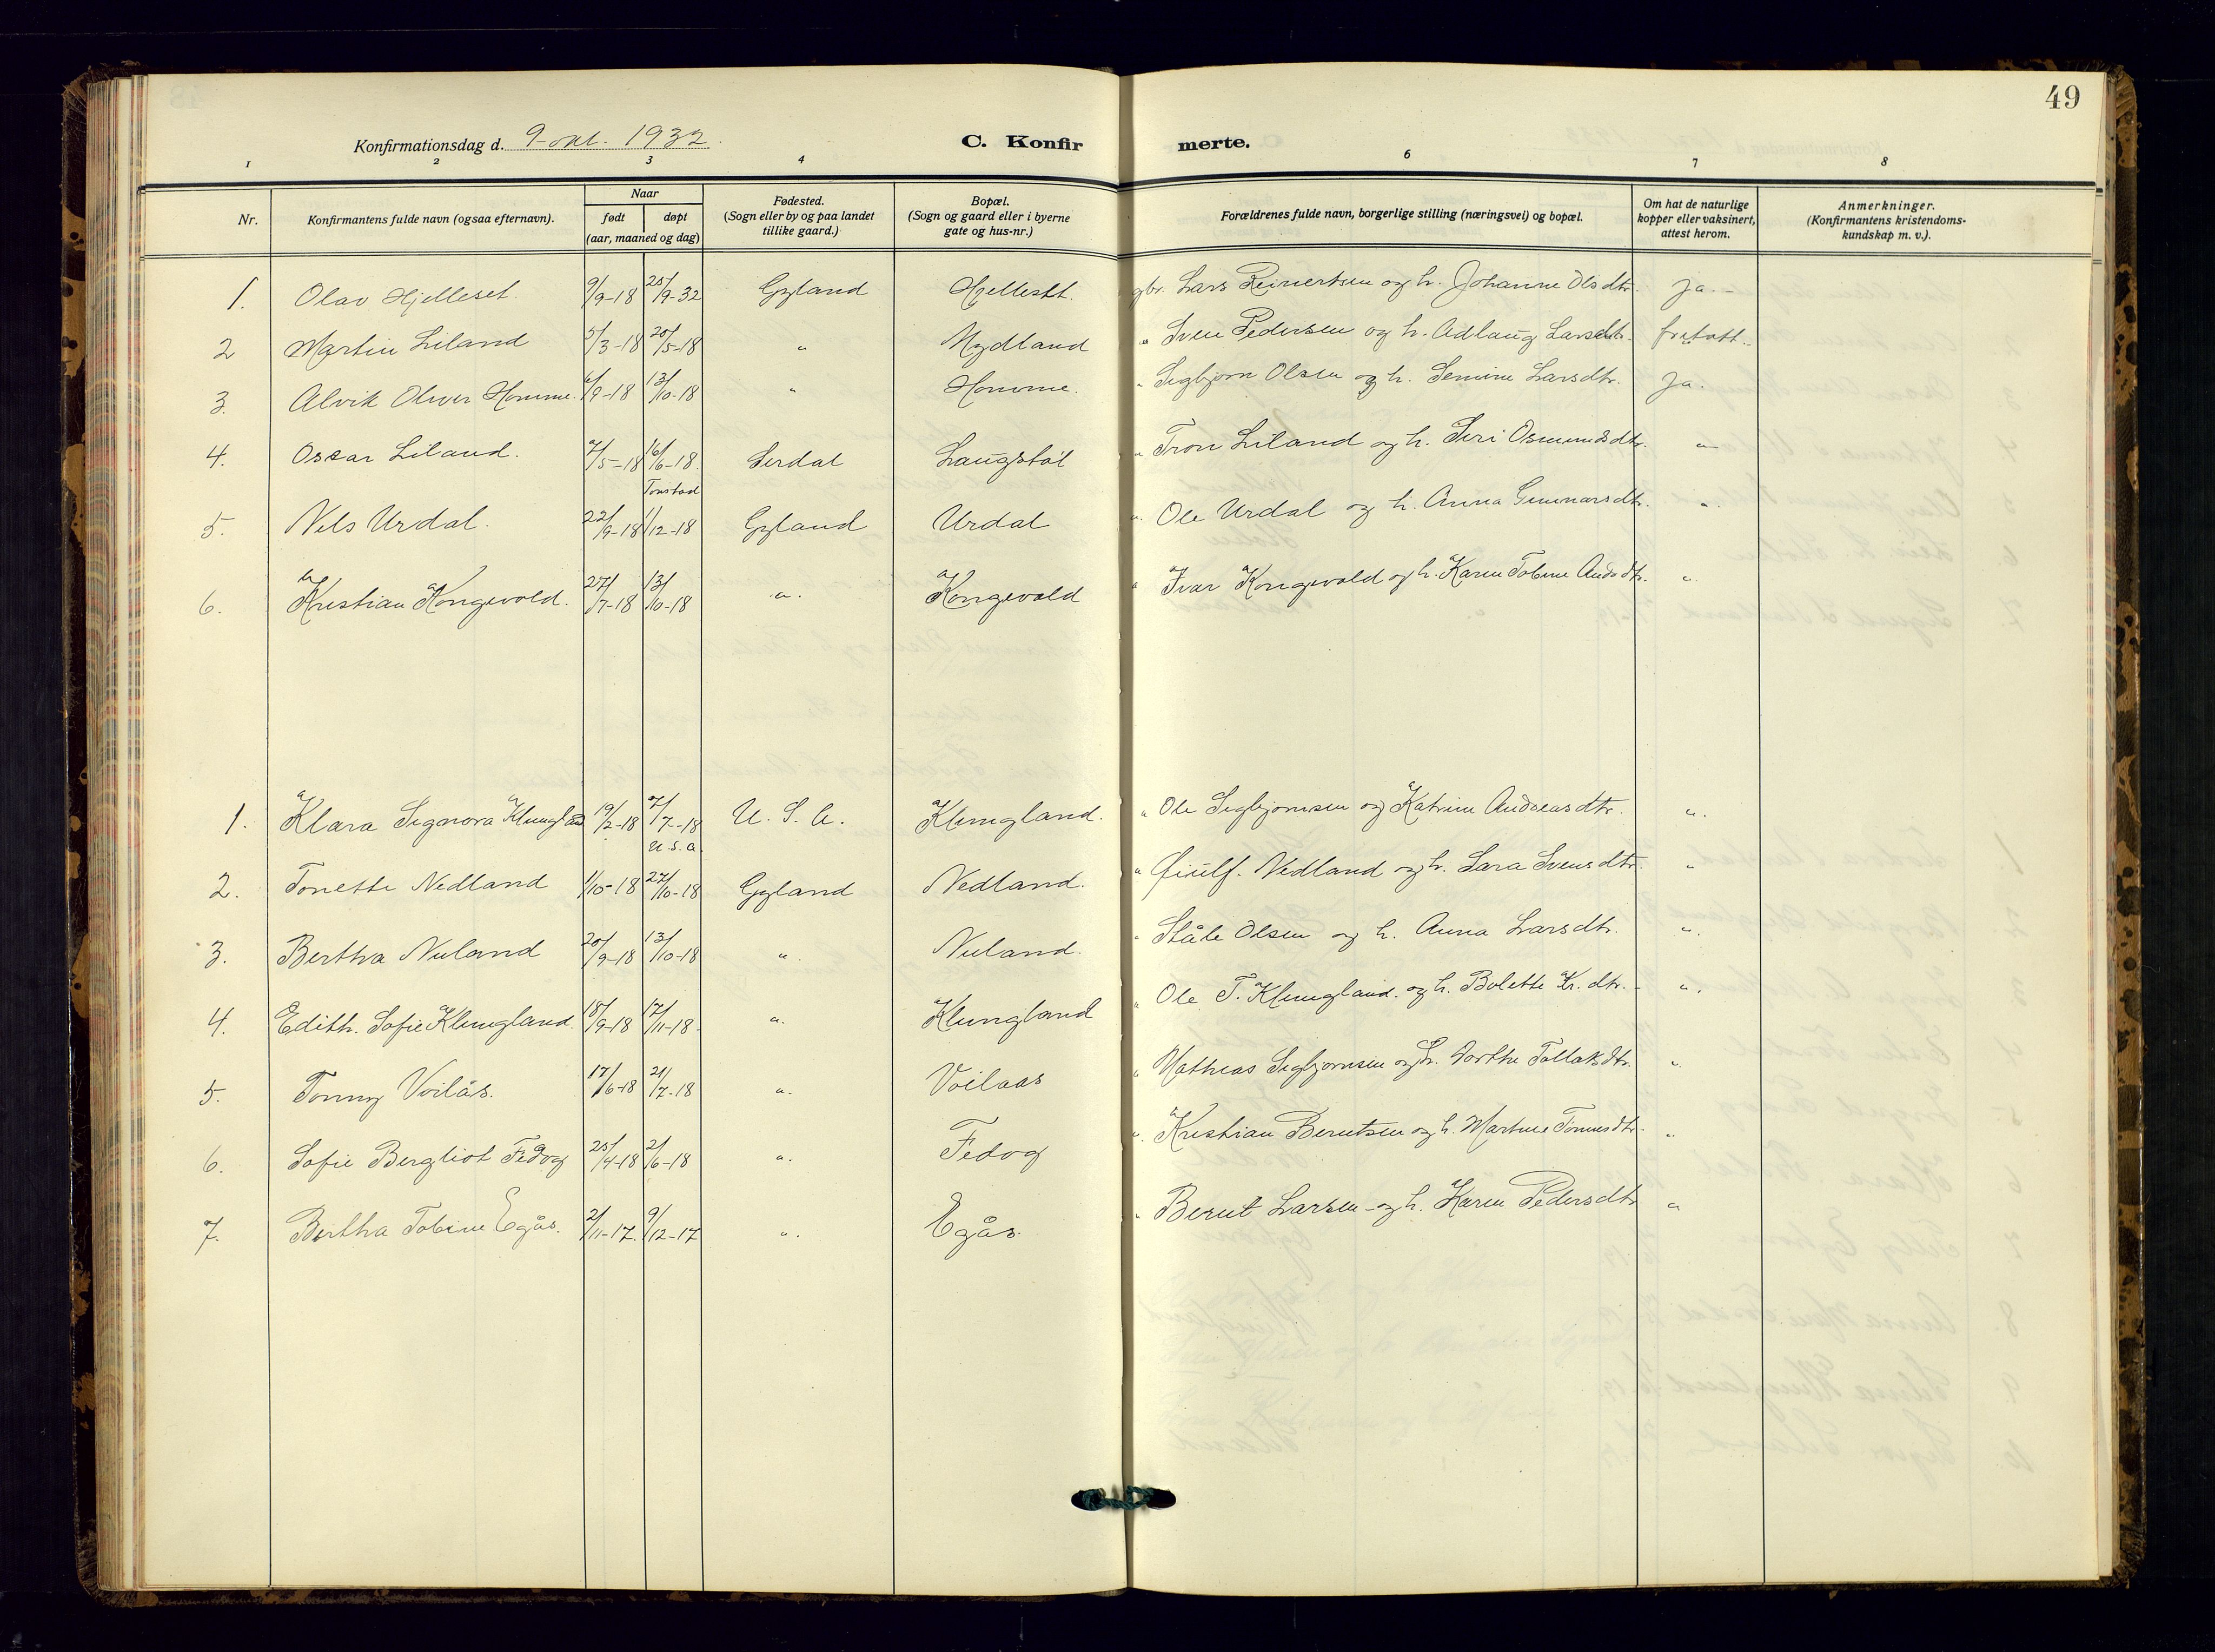 49
Konfirmationsdag d. 9-okt. 1932.
C. Konfirmerte.
1 2 3 4 6 7 8
Nr.
Konfirmantens fulde navn (ogsaa efternavn).
Naar
født døpt
(aar, maaned og dag)
Fødested.
(Sogn eller by og paa landet
tillike gaard.)
Bopæl.
(Sogn og gaard eller i byerne
gate og hus-nr.)
Forældrenes fulde navn, borgerlige stilling (næringsvei) og bopæl.
Om hat de naturlige
kopper eller vaksinert,
attest herom.
Anmerkninger.
(Konfirmantens kristendoms-
kundskap m. v.).
1. Olav Hjelleset. 9/9-18 25/9-32 Gyland Hjellestt. gbr. Lars Reinertsen og h. Johanne Olsdtr. Ja.-
2 Martin Liland 5/3-18 20/5-18 " Mydland " Sven Pedersen og h. Adlaug Larsdtr. fritatt.
3. Alvik Oliver Homme. 6/9-18 13/10-18 " Homme. " Sigbjørn Olsen og h. Semine Larsdtr. Ja.
4. Oscar Liland. 7/5-18 16/6-18 Sirdal Laugstøl " Tron Liland og h. Siri Osmundsdtr. "
Tonstad
5. Nils Urdal. 22/9-18 1/12-18 Gyland Urdal " Ole Urdal og h. Anna Gunnarsdtr. "
6. Kristian Kongevold. 27/7-18 13/10-18 " Kongevold " Ivar Kongevold og h. Karen Tobine Andsdtr. "
1. Klara Signora Klungland 19/2-18 7/7-18 U. S. A. Klungland. " Ole Sigbjørnsen og Katrine Andreasdtr. "
U.S.A.
2. Tonette Nedland 1/10-18 27/10-18 Gyland Nedland. " Nedland og h. Sara Svensdtr. "
3. Bertha Nuland 20/9-18 13/10-18 " Nuland. " Ståle Olsen og h. Anna Larsdtr. "
4. Edith. Sofie Klungland. 18/9-18 17/11-18 " Klungland " Ole T. Klungland. og h. Bolette Kr. dtr. "
5. Tonny Voilås. 17/6-18 21/7-18 " Voilaas " Mathias Sigbjørnsen og h. Dorthe Tollaksdtr. "
6. Sofie Bergliot Fedog 25/4-18 2/6-18 " Fedog " Kristian Berntsen og h. Martine Tønnesdtr. "
7. Bertha Tobine Egås. 2/11-17. 9/12-17 " Egås. " Bernt Larsen og h. Karen Pedersdtr. "